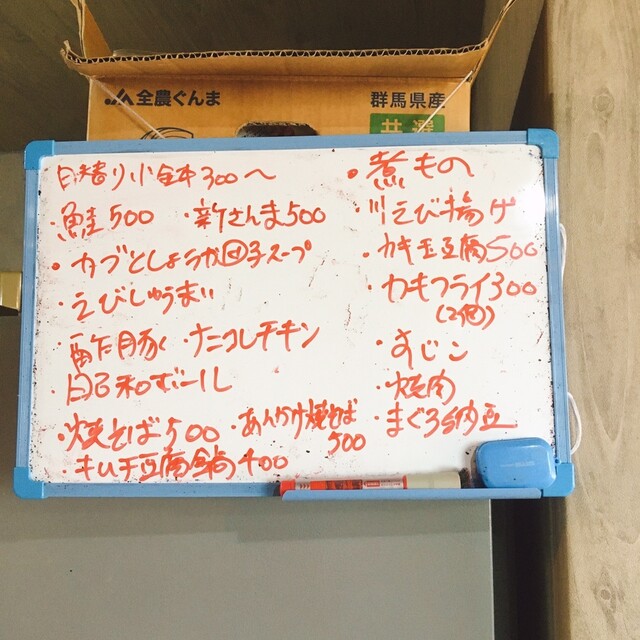 全農ぐんま
群馬県産
共選
日替り小鉢300〜
・鮭500 ・新さんま500
・カブとしょうが団子スープ
・えびしゅうまい
・酢豚 ・ナニコレチキン
昭和ボール
・焼そば500 ・あんかけ焼そば500
・キムチ豆腐鍋400
・煮もの
・川えび揚げ
・カキ玉豆腐500
・カキフライ300
(2個)
・すじこ
・焼肉
・まぐろ納豆